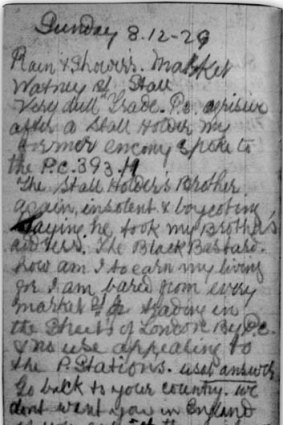 Sunday 8.12-29
Rain & Showers. Market
Watney St. Stall
Very dull Trade. P.c. arrive
after a Stall Holder my
former enemy Spoke to
the P.C. 393 H
The Stall Holder's Brother
again, insolent & boycoting
Saying he took my Brother's
The Black Bastard.
how am I to earn my living
for I am bared from every
market & trading in
the Streets of London By P.C.
& no use appealing to
the P. Stations. usal answer
Go back to your country. we
dont want you in England